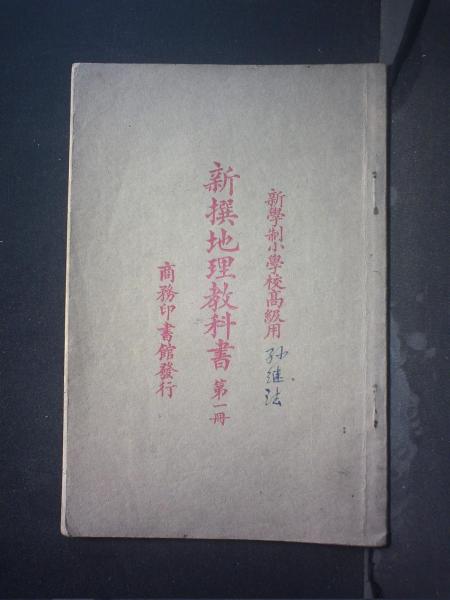 新學制小學校高級用
孙继法
新撰地理教科書 第一冊
商務印書館發行